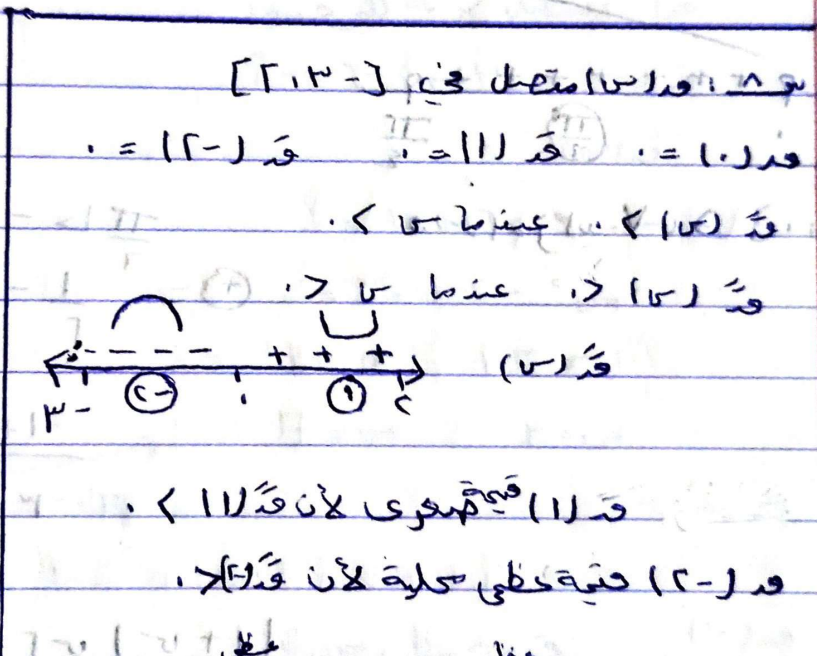 س٨ : ق(س) متصل في [-٣ ، ٢]
ق(٠) = ٠ قَ(١) = ٠ قَ(-٢) = ٠
قً(س) > ٠ عندما س > ٠
قً(س) < ٠ عندما س < ٠
قً(س) - - - - + + +
-٣ -٢ ٠ ١ ٢
ق(١) قيمة صغرى لأن قً(١) > ٠
ق(-٢) قيمة عظمى محلية لأن قً(-٢) < ٠